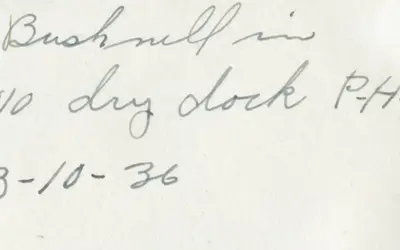 Bushnell in
10 dry dock P-H
3-10-36